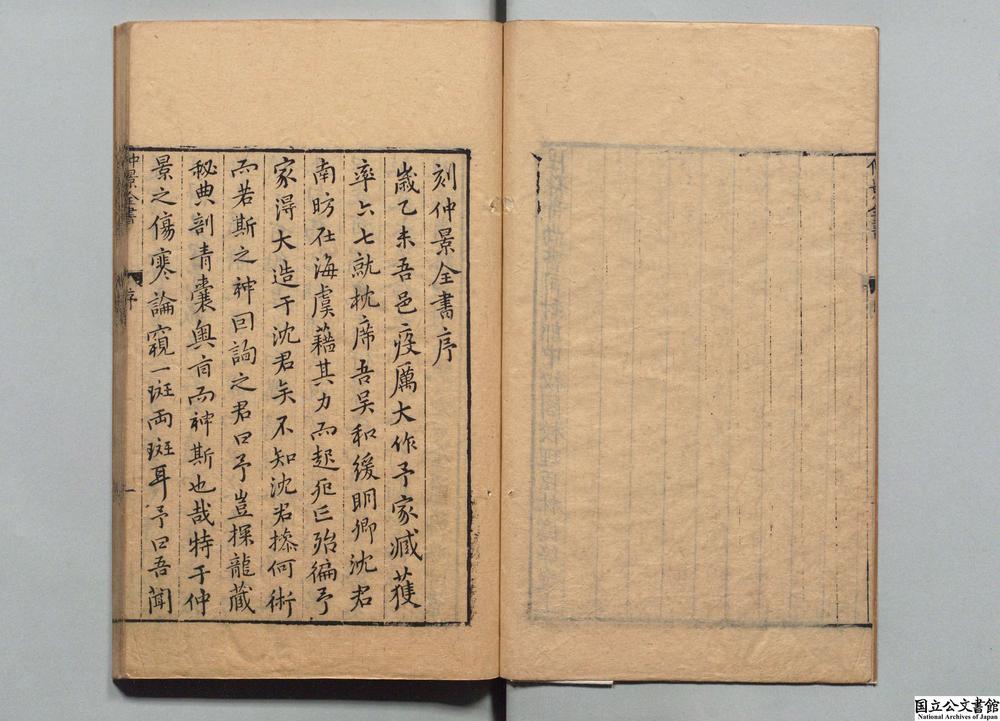 刻仲景全書序
歲乙未吾邑疫厲大作予家臧獲
率六七就枕席吾吳和緩明卿沈君
南昉在海虞藉其力而起死亡殆徧予
家得大造于沈君矣不知沈君操何術
而若斯之神因詢之君曰予豈探龍藏
秘典剖青囊奧旨而神斯也哉特于仲
景之傷寒論窺一斑兩斑耳予曰吾聞
仲景全書
序
国立公文書館
National Archives of Japan